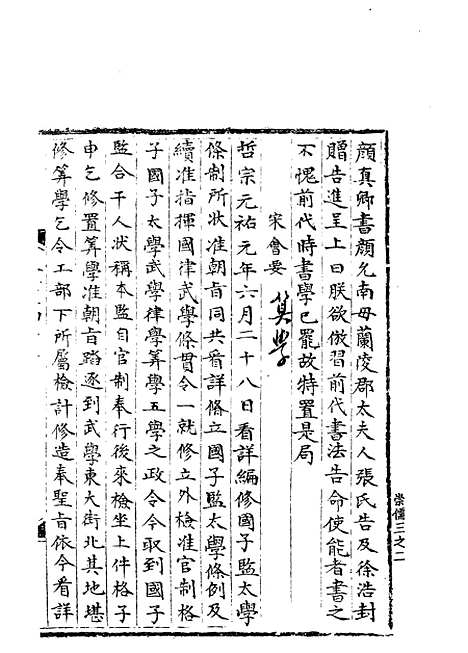 顏真卿書顏允南母蘭陵郡太夫人張氏告及徐浩封
贈告進呈上曰朕欲倣習前代書法告命使能者書之
不愧前代時書學已罷故特置是局
宋會要
算學
哲宗元祐元年六月二十八日看詳編修國子監太學
條制所狀准朝旨同共看詳脩立國子監太學條例及
續准指揮國律武學條貫令一就修立外檢准官制格
子國子太學武學律學筭學五學之政令今取到國子
監合干人狀稱本監自官制奉行後來檢坐上件格子
申乞修置筭學准朝旨踏逐到武學東大街北其地堪
修筭學乞令工部下所屬檢計修造奉聖旨依今看詳
崇儒三之二